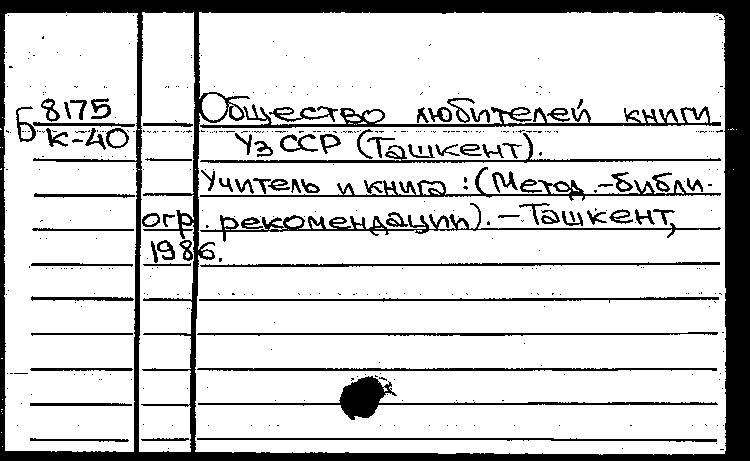 Б 8175
К-40
Общество любителей книги
УзССР (Ташкент).
Учитель и книга : (Метод.-библи-
огр. рекомендации). - Ташкент,
1986.